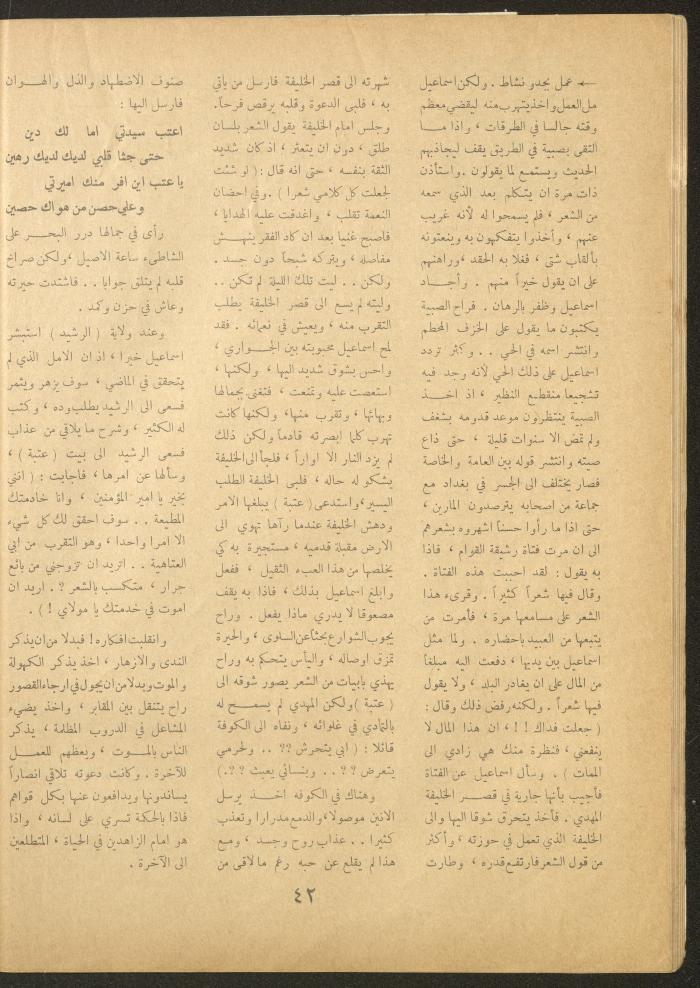 ← عمل يجدو نشاط . ولكن اسماعيل
مل العمل واخذ يتهرب منه ليقضي معظم
وقته جالسا في الطرقات ، واذا مـــا
التقى بصبية في الطريق يقف ليجاذبهم
الحديث ويستمع لما يقولون . واستأذن
ذات مرة ان يتكلم بعد الذي سمعه
من الشعر ، فلم يسمحوا له لأنه غريب
عنهم ، وأخذوا يتفكهون به وينعتونه
بألقاب شتى ، فغلا به الحقد ، وراهنهم
على ان يقول خيراً منهم . وأجـــاد
اسماعيل وظفر بالرهان . فراح الصبية
يكتبون ما يقول على الخزف المحطم
وانتشر اسمه في الحي . . وكثر تردد
اسماعيل على ذلك الحي لأنه وجد فيه
تشجيعا منقطع النظير ، اذ اخــذ
الصبية ينتظرون موعد قدومه بشغف
ولم تمض الا سنوات قليلة ، حتى ذاع
صيته وانتشر قوله بين العامة والخاصة
فصار يختلف الى الجسر في بغداد مع
جماعة من اصحابه يترصدون المارين ،
حتى اذا ما رأوا حسناً اشهروه بشعرهم
الى ان مرت فتاة رشيقة القوام ، فاذا
به يقول : لقد احببت هذه الفتاة .
وقال فيها شعراً كثيراً . وقرىء هذا
الشعر على مسامعها مرة ، فأمرت من
يتبعها من العبيد باحضاره . ولما مثل
اسماعيل بين يديها ، دفعت اليه مبلغاً
من المال على ان يغادر البلد ، ولا يقول
فيها شعراً . ولكنه رفض ذلك وقال :
( جعلت فداك ! ! ، ان هذا المال لا
ينفعني ، فنظرة منك هي زادي الى
الممات ) . وسأل اسماعيل عن الفتاة
فأجيب بأنها جارية في قصــر الخليفة
المهدي . فأخذ يتحرق شوقا اليها والى
الخليفة الذي تعمل في حوزته ، وأكثر
من قول الشعر فارتفع قدره ، وطارت
شهرته الى قصر الخليفة فارسل من يأتي
به ، فلبى الدعوة وقلبه يرقص فرحاً.
وجلس امام الخليفة يقول الشعر بلسان
طلق ، دون ان يتعثر ، اذ كان شديد
الثقة بنفسه ، حتى انه قال : ( لو شئت
لجعلت كل كلامي شعرا ) .وفي احضان
النعمة تقلب ، واغدقت عليه الهدايا ،
فاصبح غنيا بعد ان كاد الفقر ينهــش
مفاصله ، ويتركه شبحاً دون جسد .
ولكن . . ليت تلك الليلة لم تكن . .
وليته لم يسع الى قصر الخليفة يطلب
التقرب منه ، ويعيش في نعمائه . فقد
لمح اسماعيل محبوبته بين الجــواري ،
واحس بشوق شديد اليها ، ولكنها ،
استعصت عليه وتمنعت ، فتغنى بجمالها
وبهائها ، وتقرب منها، ولكنها كانت
تهرب كلما ابصرته قادماً ولكن ذلك
لم يزد النار الا اواراً ، فلجأ الى الخليفة
يشكو له حاله ، فلبى الخليفة الطلب
اليسير، واستدعى ( عتبة ) يبلغها الامر
ودهش الخليفة عندما رآها تهوي الى
الارض مقبلة قدميه ، مستجيرة به كي
يخلصها من هذا العبء الثقيل ، ففعل
وابلغ اسماعيل بذلك ، فاذا به يقف
مصعوقا لا يدري ماذا يفعل . وراح
يجوب الشوارع بحثاً عن السلوى ، والحيرة
تمزق اوصاله ، واليأس يتحكم به وراح
يهذي بابيات من الشعر يصور شوقه الى
( عتبة ) ولكن المهدي لم يسمــح له
بالتمادي في غلوائه ، ونفاه الى الكوفة
قائلا : ( أبي يتحرش ؟؟ . . ولحرمي
يتعرض ؟ ؟ . . وبنسائي يعبث ؟ ؟. )
وهناك في الكوفه اخــذ يرسل
الانين موصولا، والدمع مدرارا وتعذب
كثيرا . . عذاب روح وجسد ، ومـع
هذا لم يقلع عن حبه رغم ما لاقى من
صنوف الاضطهاد والذل والهــوان
فارسل اليها :
اعتب سيدتي اما لك دين
حتى جثا قلبي لديك لديك رهين
يا عتب اين افر منك اميرتي
وعلى حصن من هواك حصين
رأى في جمالها درر البحــر على
الشاطىء ساعة الاصيل ، ولكن صراخ
قلبه لم يتلق جوابا . . فاشتدت حيرته
وعاش في حزن وكمد .
وعند ولاية ( الرشيد ) استبشر
اسماعيل خيرا ، اذ ان الامل الذي لم
يتحقق في الماضي ، سوف يزهر ويثمر
فسعى الى الرشيد يطلب وده ، وكتب
له الكثير ، وشرح ما يلاقي من عذاب
فسعى الرشيد الى بيت ( عتبة ) ،
وسألها عن امرها ، فأجابت : ( انني
بخير يا امير المؤمنين ، وانا خادمتك
المطيعة . . سوف احقق لك كل شيء
الا امرا واحدا ، وهو التقرب من ابي
العتاهية . . اتريد ان تزوجني من بائع
جرار ، متكسب بالشعر ؟ . اريد ان
اموت في خدمتك يا مولاي ! ) .
وانقلبت افكاره ! فبدلا من ان يذكر
الندى والازهار ، اخذ يذكر الكهولة
والموت وبدلا من ان يجول في ارجاء القصور
راح يتنقل بين المقابر ، واخذ يضيء
المشاعل في الدروب المظلمة ، يذكر
الناس بالمــوت ، ويعظهم للعمــل
للآخرة . وكانت دعوته تلاقي انصاراً
يساندونها ويدافعون عنها بكل قواهم
فاذا بالحكة تسري على لسانه ، واذا
هو امام الزاهدين في الحياة ، المتطلعين
الى الآخرة .
٤٢